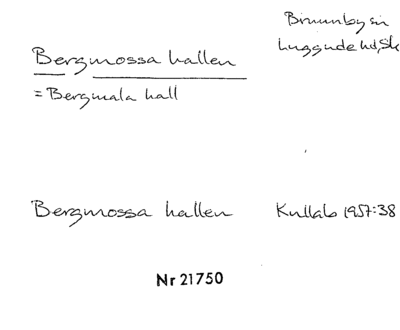 Brunnby sn
Luggude hd, Sk
Bergmossa hallen
= Bergmala hall
Bergmossa hallen Kullab 1957:38
Nr 21750